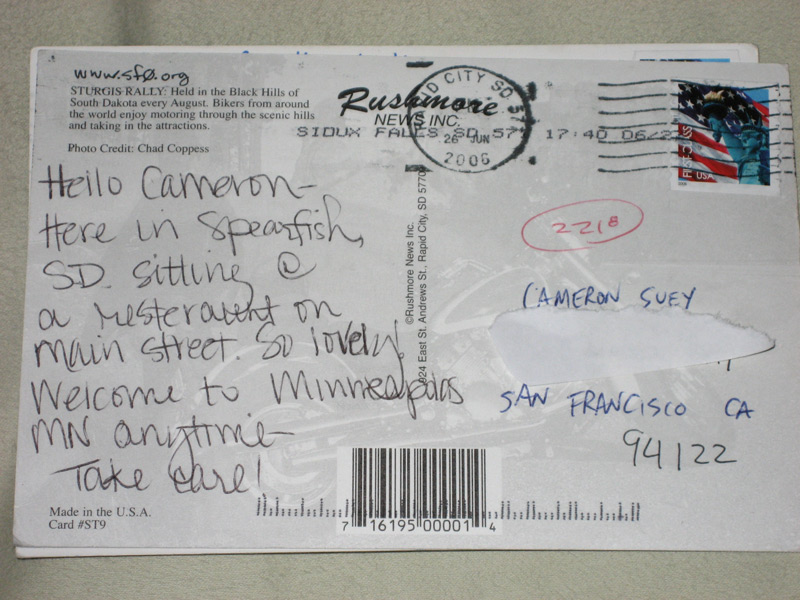 www.sf0.org
STURGIS RALLY: Held in the Black Hills of
South Dakota every August. Bikers from around
the world enjoy motoring through the scenic hills
and taking in the attractions.
Photo Credit: Chad Coppess
Hello Cameron-
Here in Spearfish,
SD. Sitting @
a resteraunt on
main street. So lovely!
Welcome to Minneapolis
MN anytime-
Take care!
Made in the U.S.A.
Card #ST9
Rushmore
NEWS INC.
SIOUX FALLS SD 57 17:40 06/2
ID CITY SD 57
26 JUN
2006
©Rushmore News Inc.
924 East St. Andrews St., Rapid City, SD 5770
FIRST-CLASS
USA
2218
CAMERON SUEY
SAN FRANCISCO CA
94122
7 16195 00001 4